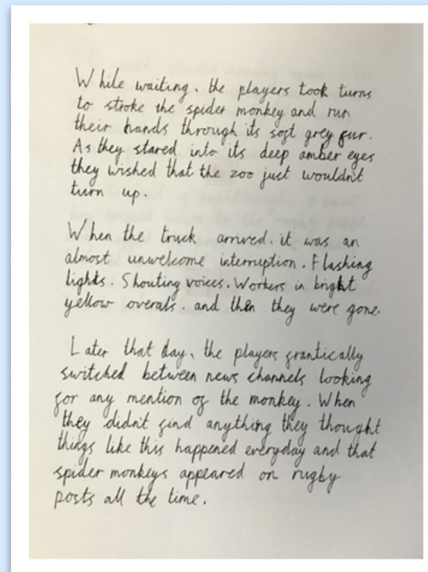 While waiting, the players took turns
to stroke the spider monkey and run
their hands through its soft grey fur.
As they stared into its deep amber eyes
they wished that the zoo just wouldn't
turn up.
When the truck arrived, it was an
almost unwelcome interruption. Flashing
lights. Shouting voices. Workers in bright
yellow overals. and then they were gone.
Later that day, the players frantically
switched between news channels looking
for any mention of the monkey. When
they didn't find anything they thought
things like this happened everyday and that
spider monkeys appeared on rugby
posts all the time.